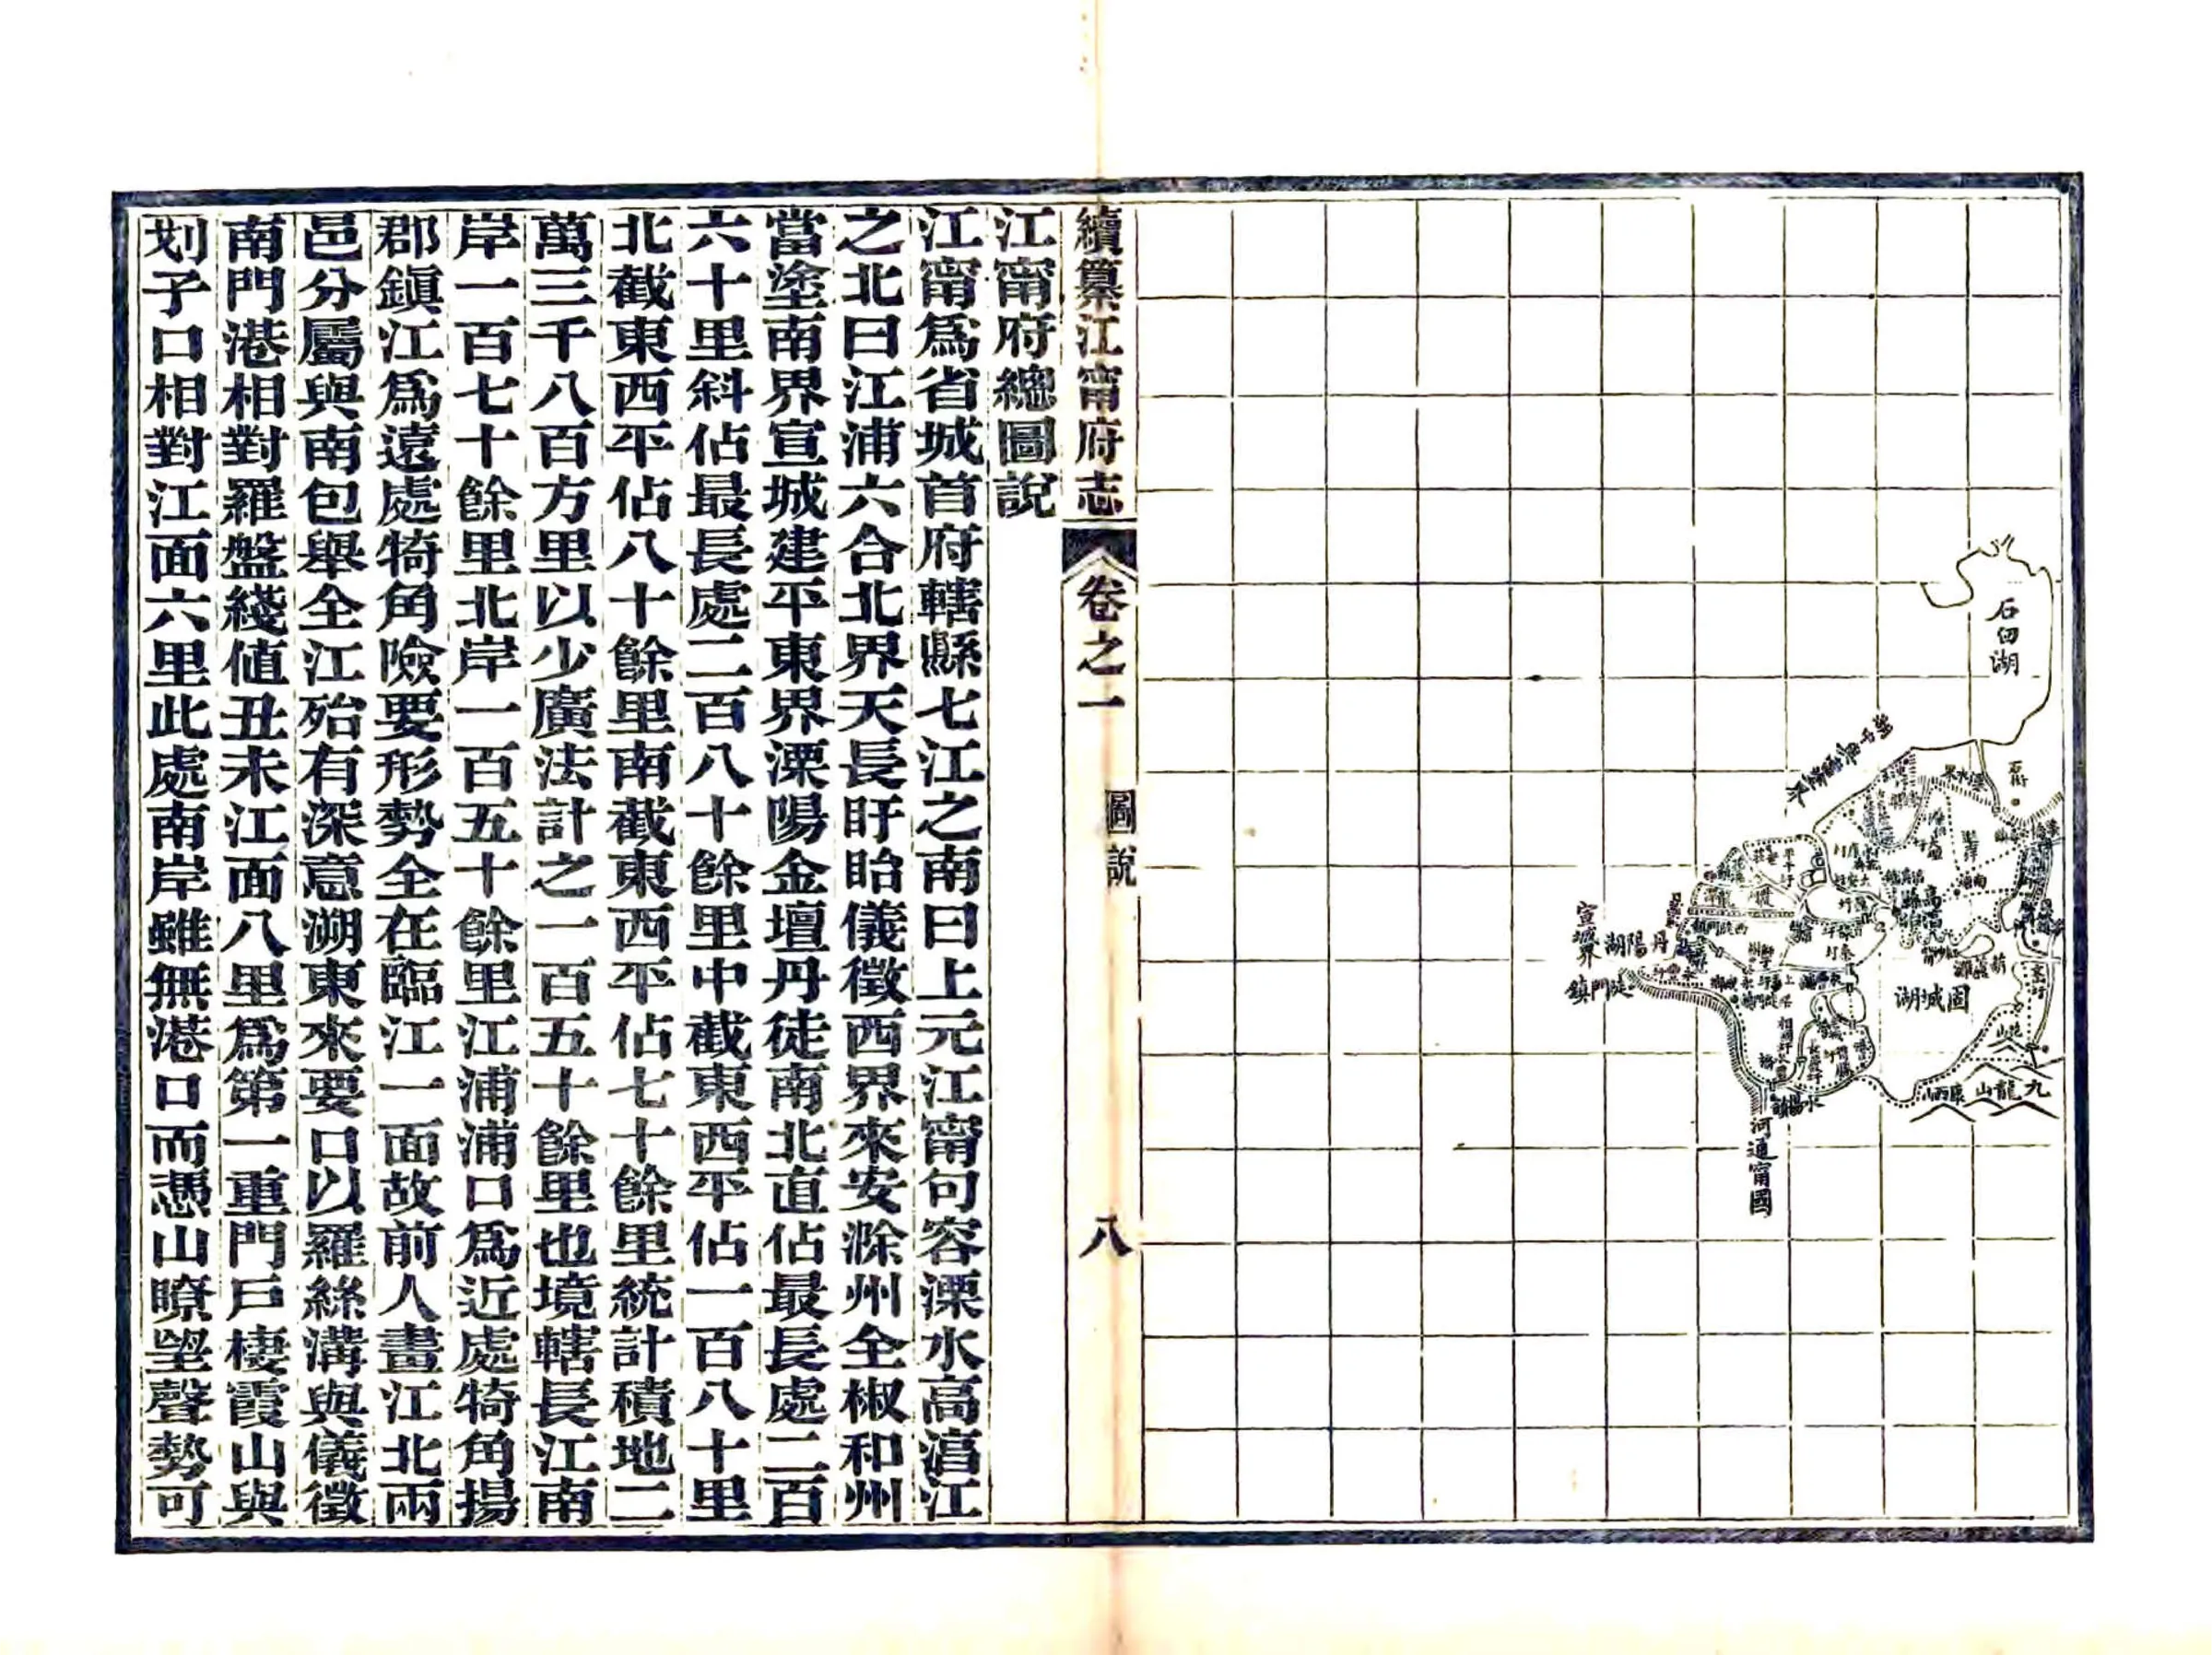 石臼湖
固城湖
丹陽湖
宣城界
陡門鎮
水陽鎮
河通甯國
九龍山
續纂江甯府志
卷之一
圖說
八
江甯府總圖說
江甯爲省城首府轄縣七江之南曰上元江甯句容溧水高湻江
之北曰江浦六合北界天長盱眙儀徵西界來安滁州全椒和州
當塗南界宣城建平東界溧陽金壇丹徒南北直佔最長處二百
六十里斜佔最長處二百八十餘里中截東西平佔一百八十里
北截東西平佔八十餘里南截東西平佔七十餘里統計積地二
萬三千八百方里以少廣法計之一百五十餘里也境轄長江南
岸一百七十餘里北岸一百五十餘里江浦浦口爲近處犄角揚
郡鎭江爲遠處犄角險要形勢全在臨江一面故前人畫江北兩
邑分屬與南包舉全江殆有深意溯東來要口以羅絲溝與儀徵
南門港相對羅盤綫値丑未江面八里爲第一重門戶棲霞山與
划子口相對江面六里此處南岸雖無港口而憑山瞭望聲勢可